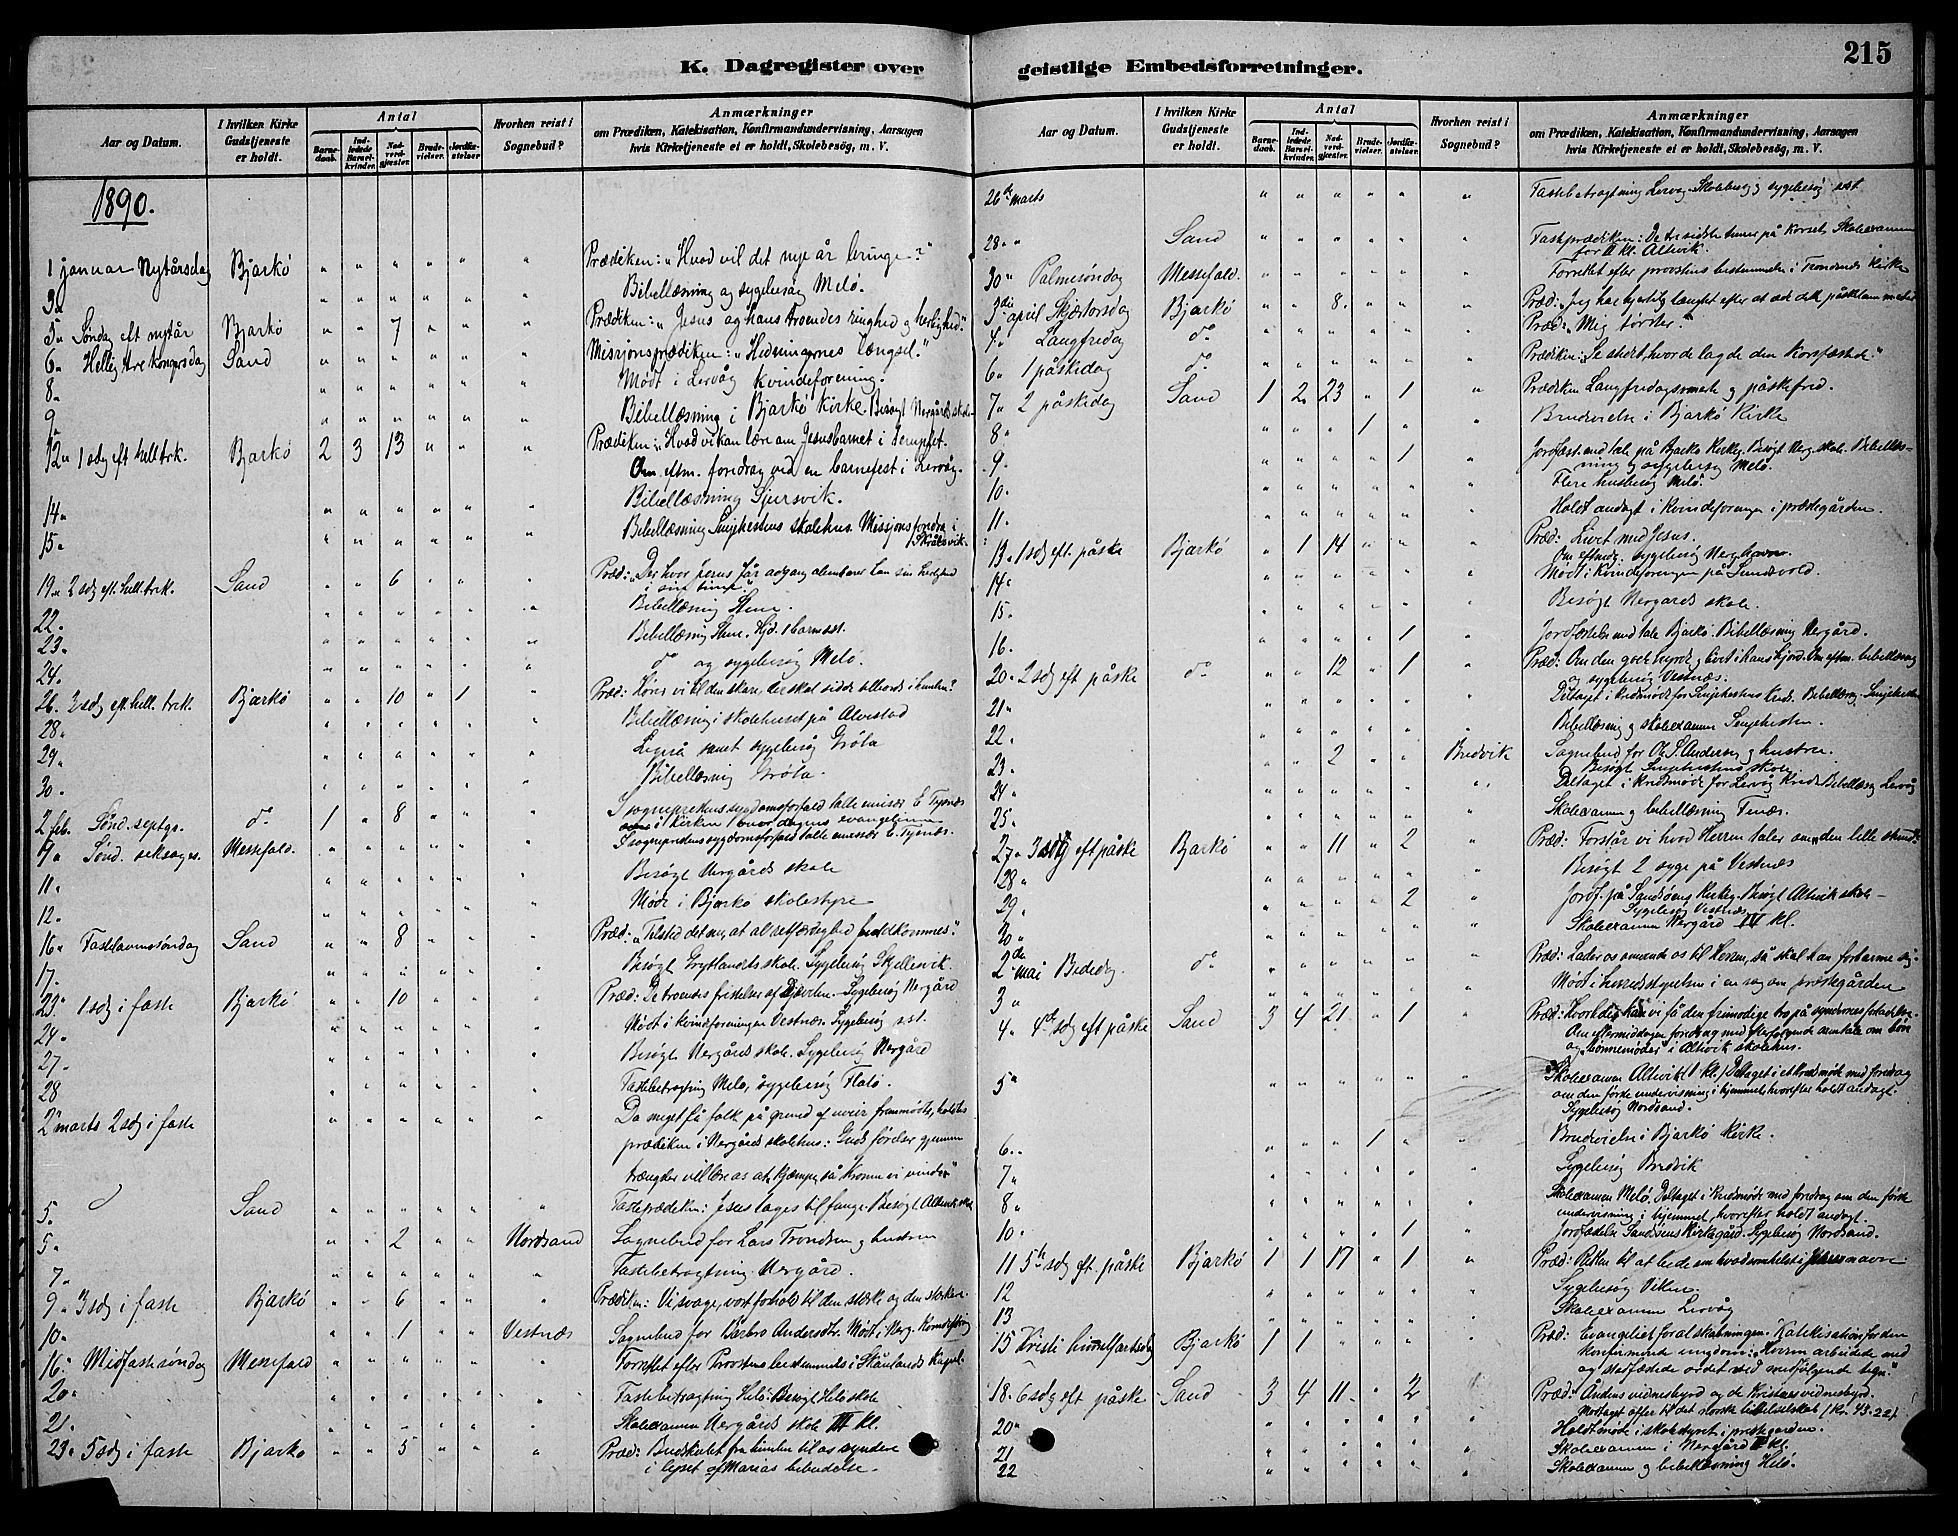 K. Dagregister over geistlige Embedsforretninger.
215
Aar og Datum.
I hvilken Kirke Gudstjeneste er holdt.
Antal
Barnedaab.
Indledede Barselkvinder.
Nadverdgjæster.
Brudevielser.
Jordfæstelser.
Hvorhen reist i Sognebud?
Anmærkninger
om Prædiken, Katekisation, Konfirmandundervisning, Aarsagen
hvis Kirketjeneste ei er holdt, Skolebesög, m. V.
1890.
1 januar Nytårsdag Bjarkö " " " " " " Prædiken: "Hvad vil det nye år bringe?"
3 " " " " " " " Bibellæsning og sygebesøg Melø.
5 " Søndag eft nytår Bjarkö " " 7 " " " Prædiken: "Jesus og hans troendes ringhed og herlighed."
6 " Hellig tre kongersdag Sand " " " " " " Misjonsprædiken: "Hedningernes længsel."
8 " " " " " " " Mødt i Lervåg Kvindeforening.
9 " " " " " " Bibellæsning i Bjarkö Kirke. Besøgt Nergårds skole
12 " 1 sdg eft hell trk. Bjarkö 2 3 13 " " " Prædiken: "Hvad vi kan lære om Jesusbarnet i templet.
Om eftm. foredrag ved en barnefest i Lervåg.
14 " " " " " " " Bibellæsning
15 " " " " " " " Bibellæsning Senjehestens skolehus. Misjonsforedrag i
19 " 2 sdg eft. hell. trk. Sand " " 6 " " " Præd: "Der hvor Jesus får adgang åbenbarer han sin herlighed
i sin time."
22 " " " " " " " Bibellæsning
23 " " " " " " " Bibellæsning
24 " " " " " " " do og sygebesøg Melø.
26 " 3 sdg eft hell. trk. Bjarkö " " 10 " 1 " Præd: Hører vi til den skare der skal sidde tilbords i himlen?
28 " " " " " " " Bibellæsning i skolehuset på Alvestad
29 " " " " " " " samt sygebesøg Grøla
30 " " " " " " " Bibellæsning Grøla.
2 feb. Sønd. septgs. do 1 " 8 " " " I sognepræstens sygdomsforfald talte emissær E. Tysnæs
i Kirken over dagens evangelium
9 " Sønd. seksages. Messefald. " " " " " " I sognepræstens sygdomsforfald talte emissær E. Tysnæs.
11 " " " " " " " Besøgt Nergårds skole
12 " " " " " " " Møde i Bjarkö skolestyre
16 " Fastelavnssøndag Sand " " 8 " " " Præd: "Tilsted det nu, at al retfærdighed fuldkommes".
17 " " " " " " " Besøgt Grytlands skole. Sygebesøg Skjellesvik.
23 " 1 sdg i faste Bjarkö " " 10 " " " Præd: De troendes fristelser af Djævelen. Sygebesøg Nergård
24 " " " " " " " Mødt i kvindeforeningen Vestnæs. Sygebesøg sst.
27 " " " " " " " Besøgt Nergårds skole. Sygebesøg Nergård
28 " " " " " " Fastebetragtning Melø, sygebesøg Flatø.
2 marts 2 sdg i faste " " " " " " Da meget få folk på grund af uveir fremmødte, holdtes
prædiken i Nergårds skolehus: Guds førelser gjennem
trængsler vil lære os at kjæmpe, så kronen vi vinder"
5 " Sand " " " " " " Fasteprædiken: Jesus tages til fange. Besøgt Altevik skole
5 " " " 2 " " Nordsand Sognebud for Lars Trondsen og hustru
7 " " " " " " " Fastebetragtning Nergård.
9 " 3 sdg i faste Bjarkö " " 6 " " " Prædiken: Vi svage, vort forhold til den stærke og den stærkere.
10 " " " 1 " " Vestnæs Sognebud for Barbro Andersdtr. Mødt i Nerg. Kvindefening
16 " Midfastesøndag Messefald " " " " " " Forrettet efter Provstens bestemmelse i Skånlands Kapel.
20 " " " " " " " Fastebetragtning Helø. Besøgt Helø skole
21 " " " " " " " Skolexamen Nergårds skole III kl.
23 " 5 sdg i faste Bjarkö " " 5 " " " Præd: Budskabet fra himlen til os syndere
i lyset af Marias bebudelse.
Aar og Datum.
I hvilken Kirke Gudstjeneste er holdt.
Antal
Barnedaab.
Indledede Barselkvinder.
Nadverdgjæster.
Brudevielser.
Jordfæstelser.
Hvorhen reist i Sognebud?
Anmærkninger
om Prædiken, Katekisation, Konfirmandundervisning, Aarsagen
hvis Kirketjeneste ei er holdt, Skolebesög, m. V.
26de marts " " " " " " Fastebetragtning Lervåg. Skolebesøg og sygebesøg sst.
28 " " Sand " " " " " " Fastprædiken: De tre sidste timer på Korset. Skolexamen
for II kl. Altevik.
30 " Palmesøndag Messefald. " " " " " " Forrettet efter provstens bestemmelse i Trondenes Kirke
3die april Skjærtorsdag Bjarkö " " 8 " " " Præd: "Jeg har hjertelig længtet efter at æde dette påskelam med eder
4 " Langfredag do " " " " " " Præd: "Mig tørster."
6 " 1 påskedag do " " " " " " Prædiken: Se stedet, hvor de lagde den Korsfæstede."
7 " 2 påskedag Sand 1 2 23 " 1 " Prædiken Langfredagsmørke og påskefred.
8 " " " " 1 " " Brudevielse i Bjarkö Kirke
9 " " " " " 1 " Jordfæst. med tale på Bjarkö Kirkeg. Besøgt Nerg. skole. Bibellæsning
og sygebesøg Melø.
10 " " " " " " " Flere husbesøg Melø.
11 " " " " " " " Holdt andagt i Kvindeforeningen i præstegården.
13 " 1 sdg eft. påske Bjarkö " 1 14 " " " Præd: Livet med Jesus.
Om eftmdg. sygebesøg Nerghavn.
14 " " " " " " " Mødt i Kvindeforeningen på Sundsvold.
15 " " " " " " " Besøgt Nergårds skole.
16 " " " " " 1 " Jordfæstelse med tale Bjarkö. Bibellæsning Nergård.
20 " 2 sdg eft påske do " " 12 " 1 " Præd: Om den gode hyrde og livet i hans hjord. Om eftm. bibellæsning
og sygebesøg Vestnæs.
21 " " " " " " " Deltaget i Kredsmøde for Senjehestens Kreds. Bibellæsng. Senjehesten
22 " " " " " " " Bibellæsning og skolexamen Senjehesten.
23 " " " 2 " " Bredvik Sognebud for Ole P. Andersen og hustru.
Besøgt Senjehestens skole
24 " " " " " " " Deltaget i Kredsmøde for Lervåg Kreds. Bibellæsng Lervåg
25 " " " " " " " Skolexamen og bibellæsning Fenæs.
27 " 3 sdg eft påske Bjarkö " " 11 " 2 " Præd: Forstår vi hvad Herren taler om "den lille stund"?
28 " " " " " " " Besøgt 2 syge på Vestnæs
29 " " " " " 2 " Jordf. på Sandsøens Kirkeg. Besøgt Altevik skole.
Sygebesøg Vestnæs
30 " " " " " " " Skolexamen Nergård IV kl.
2den mai Bededag. do " " " " " " Præd: Lader os omvende os til Herren, så skal han forbarme sig.
3 " " " " " " " Mødt i herredsstyrelsen i en sag om præstegården
4 " 4de sdg eft påske Sand 3 4 21 " 1 " Præd: Hvorledes kan vi få den frimodige tro på syndernes forladelse.
Om eftermiddagen foredrag med efterfølgende samtale om bøn
og "bønnemøder" i Altevik skolehus.
5 " " " " " " " Skolexamen Altevik 1 kl. Deltaget i et Kredsmøde med foredrag
om den første undervisning i hjemmet, hvorefter holdt andagt.
Sygebesøg Nordsand.
6 " " " " 1 " " Brudevielse i Bjarkö Kirke.
7 " " " " " " " Sygebesøg Bredvik
8 " " " " " " " Skolexamen Melø. Deltaget i Kredsmøde med foredrag om den første
undervisning i hjemmet, hvorefter holdt andagt.
10 " " " " " 1 " Jordfæstelse Sandsøens Kirkegård. Sygebesøg Nordsand.
11 5te sdg eft. påske Bjarkö 1 1 17 " 1 " Præd: Retten til at bede om hvadsomhelst i Jesu navn
12 " " " " " " Sygebesøg Viken.
13 " " " " " " Skolexamen Lervåg
15 Kristi himmelfartsdg Bjarkö 1 1 " " " " Præd: Evangeliet for al skabningen. Katekisation for den
konfirmerede ungdom: "Herren arbeidede med
og stadfæstede ordet ved medfølgende tegn."
18 " 6 sdg eft påske Sand 3 4 11 " 2 " Præd: Åndens vidnesbyrd og de Kristnes vidnesbyrd.
Modtaget offer til det norske bibelselskab (Kr. 43.22).
20 " " " " " " " Holdt møde i skolestyret i præstegården.
21 " " " " " " Skolexamen i Nergård II kl.
22 " " " " " " Skolexamen og bibellæsning Helø.